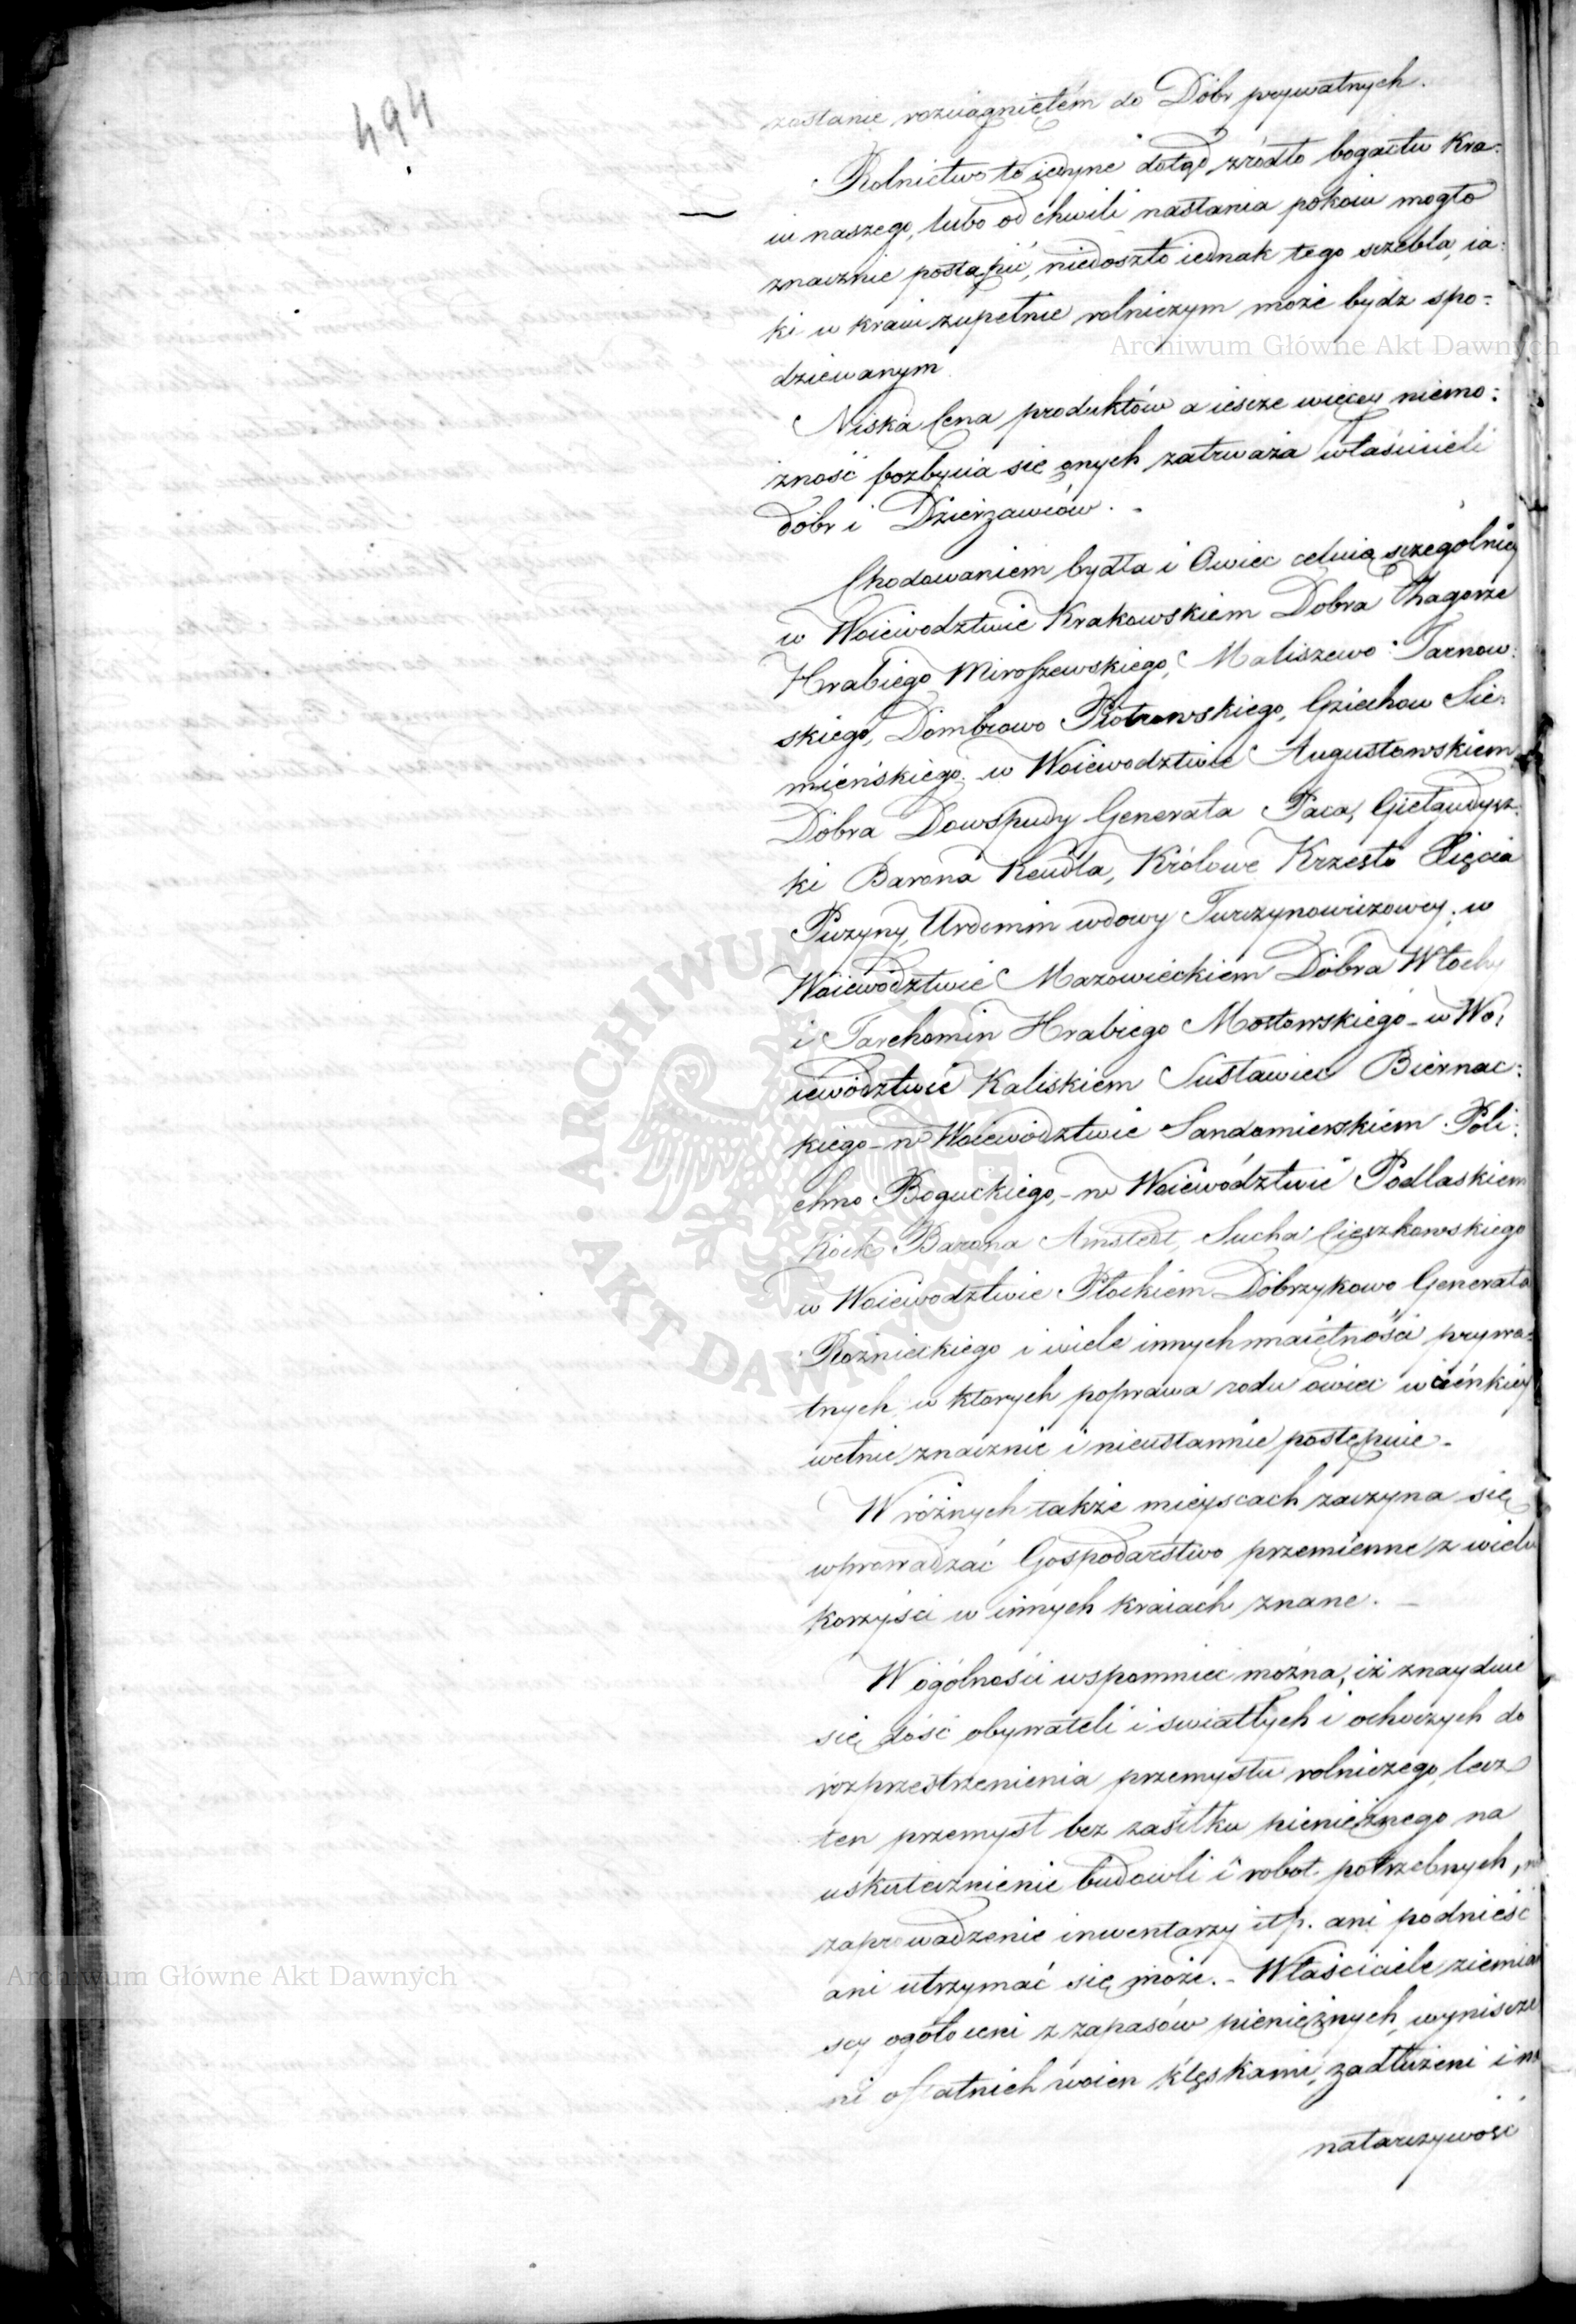 494
zostanie rozciągniętém do Dóbr prywatnych.
Rolnictwo to iedyne dotąd źródło bogactw Kra:
iu naszego, lubo od chwili nastania pokoiu mogło
znacznie postąpić, niedoszło iednak tego sczebla, ia:
ki w kraiu zupełnie rolniczym może bydz spo=
dziewanym
Archiwum Główne Akt Dawnych
Niska Cena produktów a iescze więcey niemo:
żność pozbycia się onych zatrważa właścicieli
dóbr i Dzierżawców.
Chodowaniem bydła i Owiec celuią sczególniey
w Woiewodztwie Krakowskiem Dobra Zagorze
Hrabiego Miroszewskiego, Maliszewo Tarnow:
skiego, Dombrowo Piotrowskiego, Gziechow Sie:
mieńskiego. w Woiewodztwie Augustowskiem
Dobra Dowspudy Generała Paca, Giełgudysz:
ki Barona Keudla, Królowe Krzesło Xięcia
Puzyny, Urdomin wdowy Turczynowiczowey. w
Woiewództwie Mazowieckiem Dobra Włochy
i Tarchomin Hrabiego Mostowskiego - w Wo:
iewództwie Kaliskiem Sustawice Biernac:
kiego - w Woiewództwie Sandomierskiem Poli:
chno Boguckiego, - w Woiewództwie Podlaskiem
Kock Barona Amstedt, Sucha Cieszkowskiego
w Woiewodztwie Płockiem Dobrzykowo Generała
Rożnieckiego i wiele innych maiętności prywa:
tnych w ktorych poprawa rodu owiec w cieńkiey
wełnie znacznie i nieustannie postępuie.
W różnych także mieyscach zaczyna się
wprowadzać Gospodarstwo przemienne z wielu
korzyści w innych kraiach znane.
W ógólności wspomnieć można, iż znayduie
się dość obywateli i swiatłych i ochoczych do
rozprzestrzenienia przemysłu rolniczego, lecz
ten przemysł bez zasiłku pieniężnego na
uskutecznienie budowli i robot potrzebnych, na
zaprowadzenie inwentarzy itp. ani podnieść
ani utrzymać się może. - Właściciele ziemia
scy ogołoceni z zapasów pieniężnych, wynisze
ni ostatnich woien klęskami, zadłużeni i na
natarczywość
Archiwum Główne Akt Dawnych
ARCHIWUM GŁÓWNE · AKT DAWNYCH ·